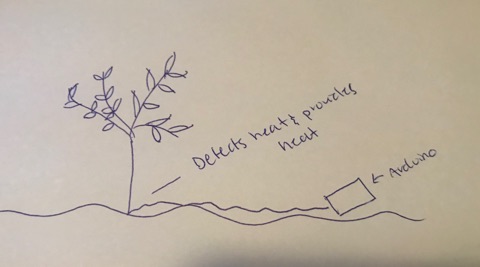 Detects heat & provides
heat
← Arduino